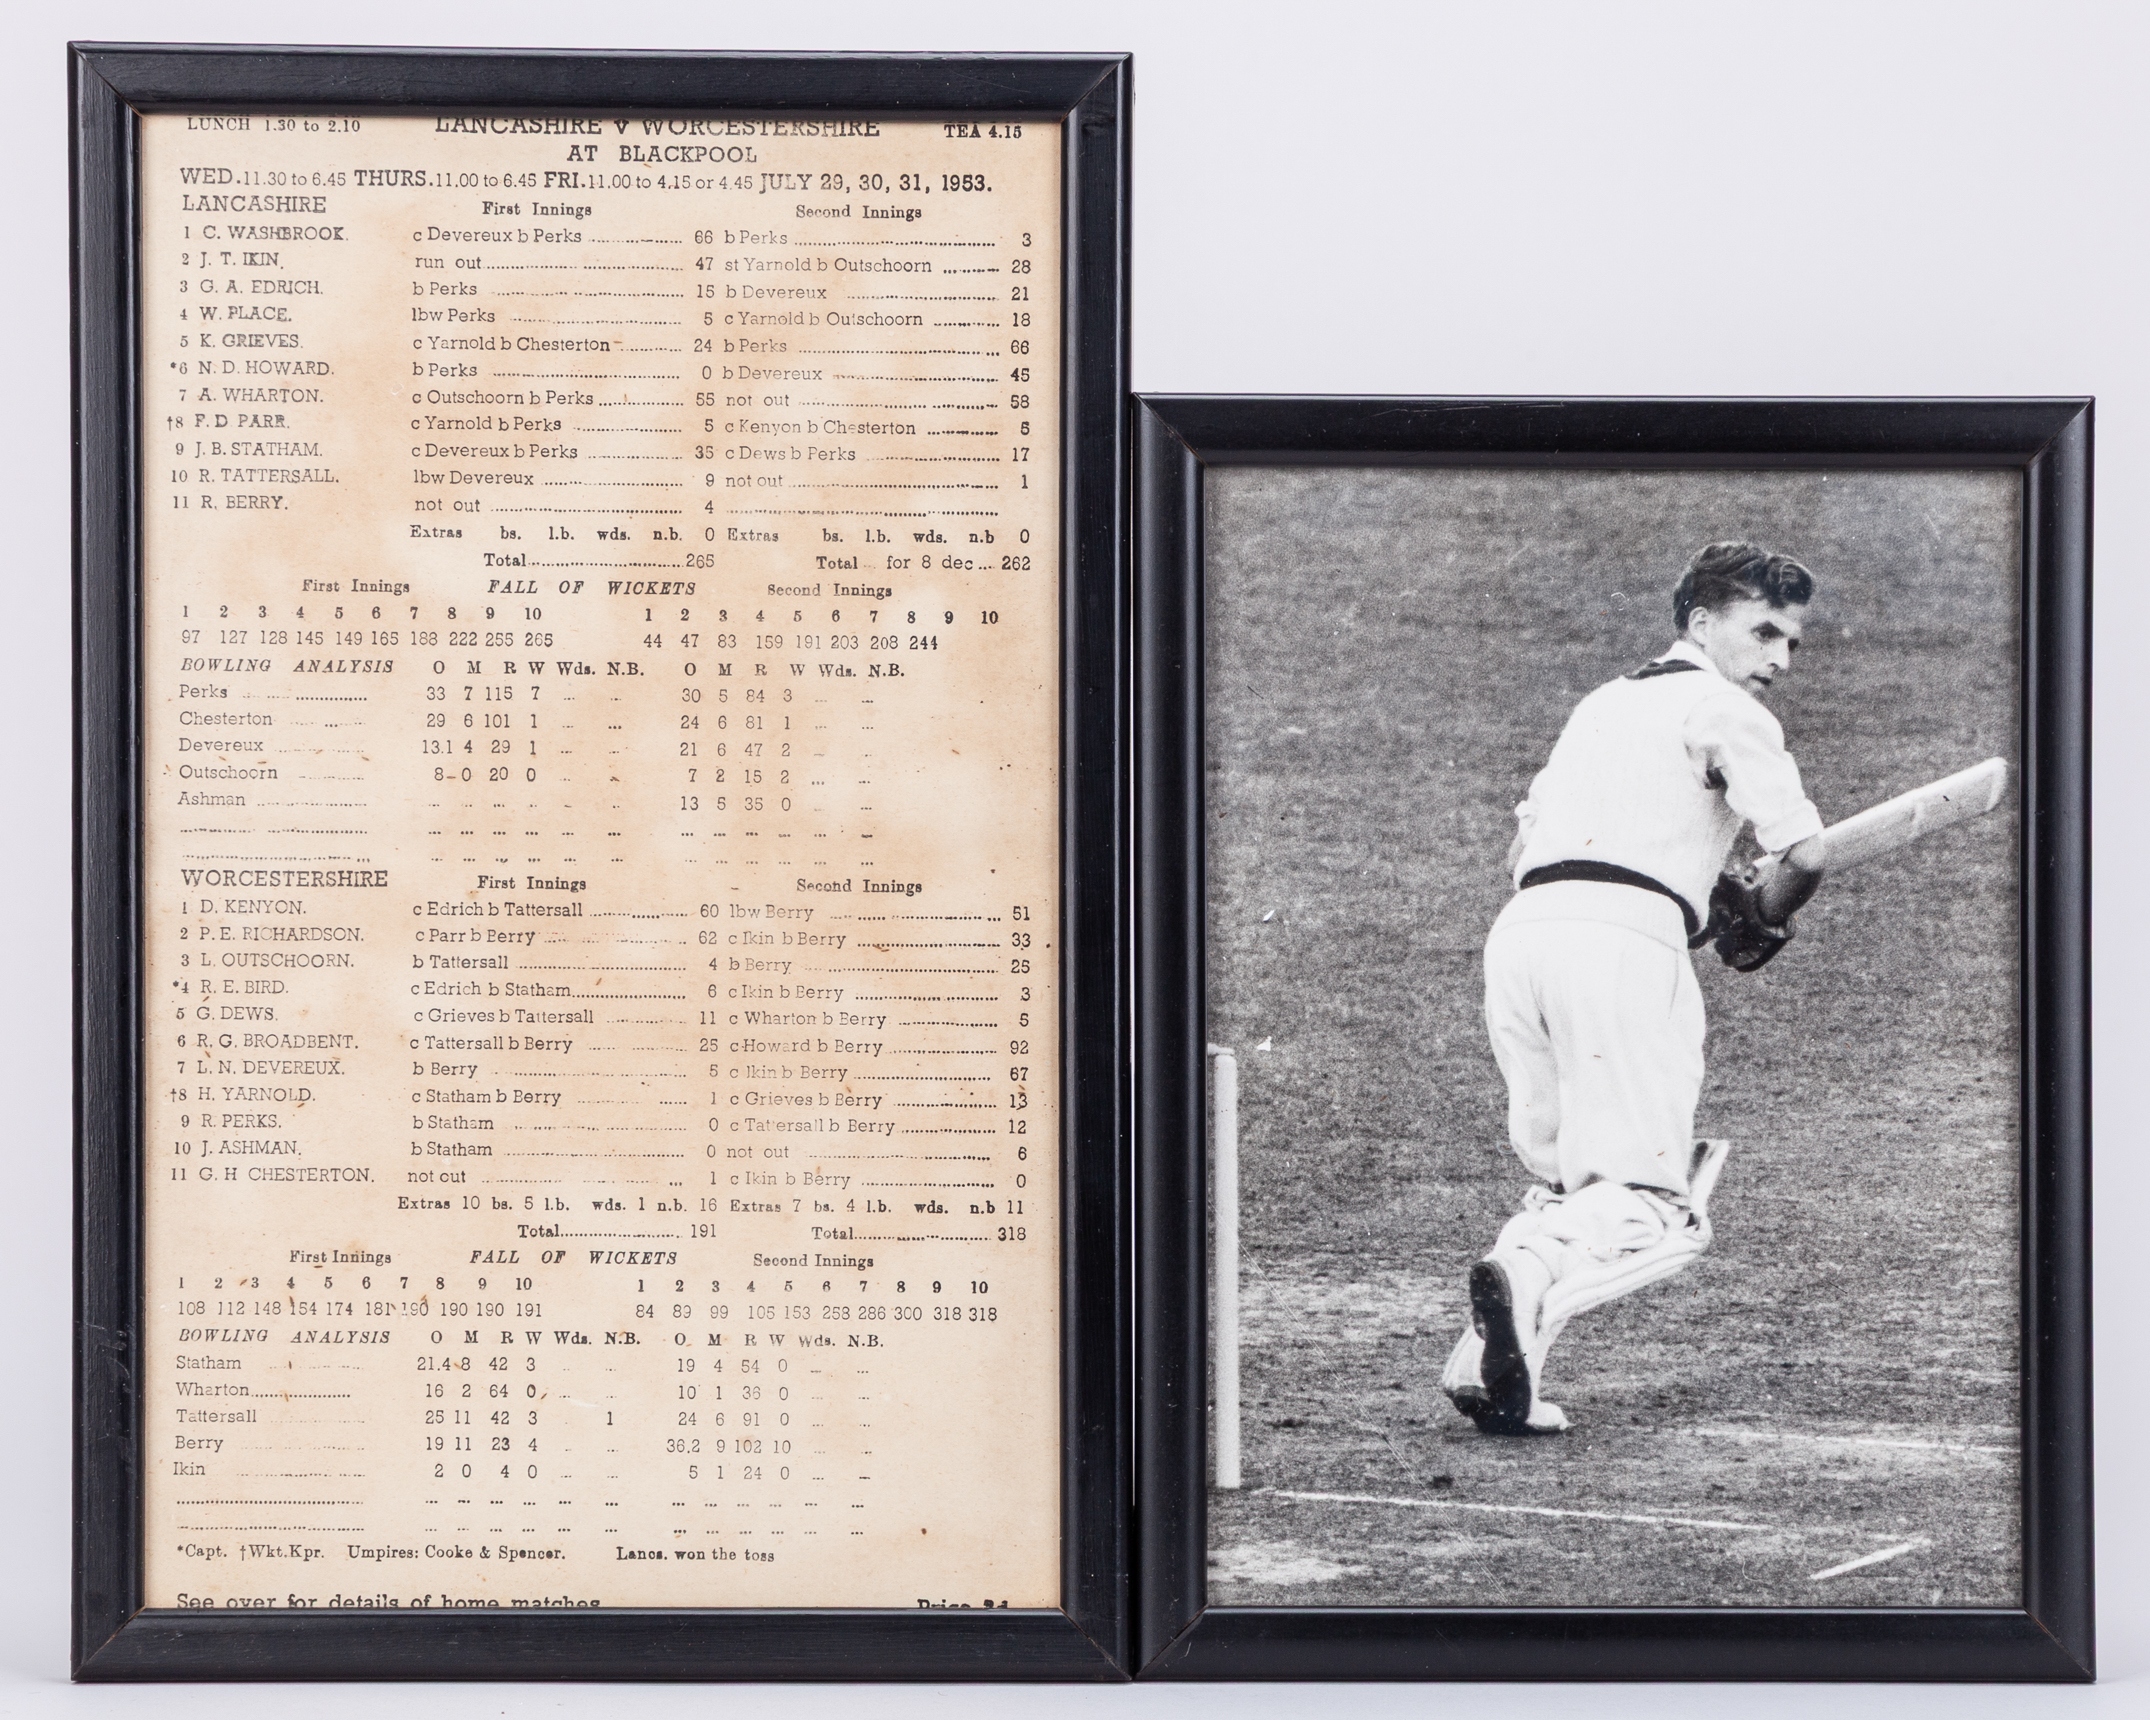 LUNCH 1.30 to 2.10 LANCASHIRE v WORCESTERSHIRE TEA 4.15
AT BLACKPOOL
WED. 11.30 to 6.45 THURS. 11.00 to 6.45 FRI. 11.00 to 4.15 or 4.45 JULY 29, 30, 31, 1953.
LANCASHIRE First Innings Second Innings
1 C. WASHBROOK. c Devereux b Perks 66 b Perks 3
2 J. T. IKIN. run out 47 st Yarnold b Outschoorn 28
3 G. A. EDRICH. b Perks 15 b Devereux 21
4 W. PLACE. lbw Perks 5 c Yarnold b Outschoorn 18
5 K. GRIEVES. c Yarnold b Chesterton 24 b Perks 66
*6 N. D. HOWARD. b Perks 0 b Devereux 45
7 A. WHARTON. c Outschoorn b Perks 55 not out 58
†8 F. D PARR. c Yarnold b Perks 5 c Kenyon b Chesterton 5
9 J. B. STATHAM. c Devereux b Perks 35 c Dews b Perks 17
10 R. TATTERSALL. lbw Devereux 9 not out 1
11 R. BERRY. not out 4
Extras bs. l.b. wds. n.b. 0 Extras bs. l.b. wds. n.b 0
Total 265 Total for 8 dec 262
First Innings FALL OF WICKETS Second Innings
1 2 3 4 5 6 7 8 9 10 1 2 3 4 5 6 7 8 9 10
97 127 128 145 149 165 188 222 255 265 44 47 83 159 191 203 208 244
BOWLING ANALYSIS O M R W Wds. N.B. O M R W Wds. N.B.
Perks 33 7 115 7 30 5 84 3
Chesterton 29 6 101 1 24 6 81 1
Devereux 13.1 4 29 1 21 6 47 2
Outschoorn 8 0 20 0 7 2 15 2
Ashman 13 5 35 0
WORCESTERSHIRE First Innings Second Innings
1 D. KENYON. c Edrich b Tattersall 60 lbw Berry 51
2 P. E. RICHARDSON. c Parr b Berry 62 c Ikin b Berry 33
3 L. OUTSCHOORN. b Tattersall 4 b Berry 25
*4 R. E. BIRD. c Edrich b Statham 6 c Ikin b Berry 3
5 G. DEWS. c Grieves b Tattersall 11 c Wharton b Berry 5
6 R. G. BROADBENT. c Tattersall b Berry 25 c Howard b Berry 92
7 L. N. DEVEREUX. b Berry 5 c Ikin b Berry 67
†8 H. YARNOLD. c Statham b Berry 1 c Grieves b Berry 13
9 R. PERKS. b Statham 0 c Tattersall b Berry 12
10 J. ASHMAN. b Statham 0 not out 6
11 G. H CHESTERTON. not out 1 c Ikin b Berry 0
Extras 10 bs. 5 l.b. wds. 1 n.b. 16 Extras 7 bs. 4 l.b. wds. n.b 11
Total 191 Total 318
First Innings FALL OF WICKETS Second Innings
1 2 3 4 5 6 7 8 9 10 1 2 3 4 5 6 7 8 9 10
108 112 148 154 174 181 190 190 190 191 84 89 99 105 153 258 286 300 318 318
BOWLING ANALYSIS O M R W Wds. N.B. O M R W Wds. N.B.
Statham 21.4 8 42 3 19 4 54 0
Wharton 16 2 64 0 10 1 36 0
Tattersall 25 11 42 3 1 24 6 91 0
Berry 19 11 23 4 36.2 9 102 10
Ikin 2 0 4 0 5 1 24 0
*Capt. †Wkt.Kpr. Umpires: Cooke & Spencer. Lancs. won the toss
See over for details of home matches Price 3d